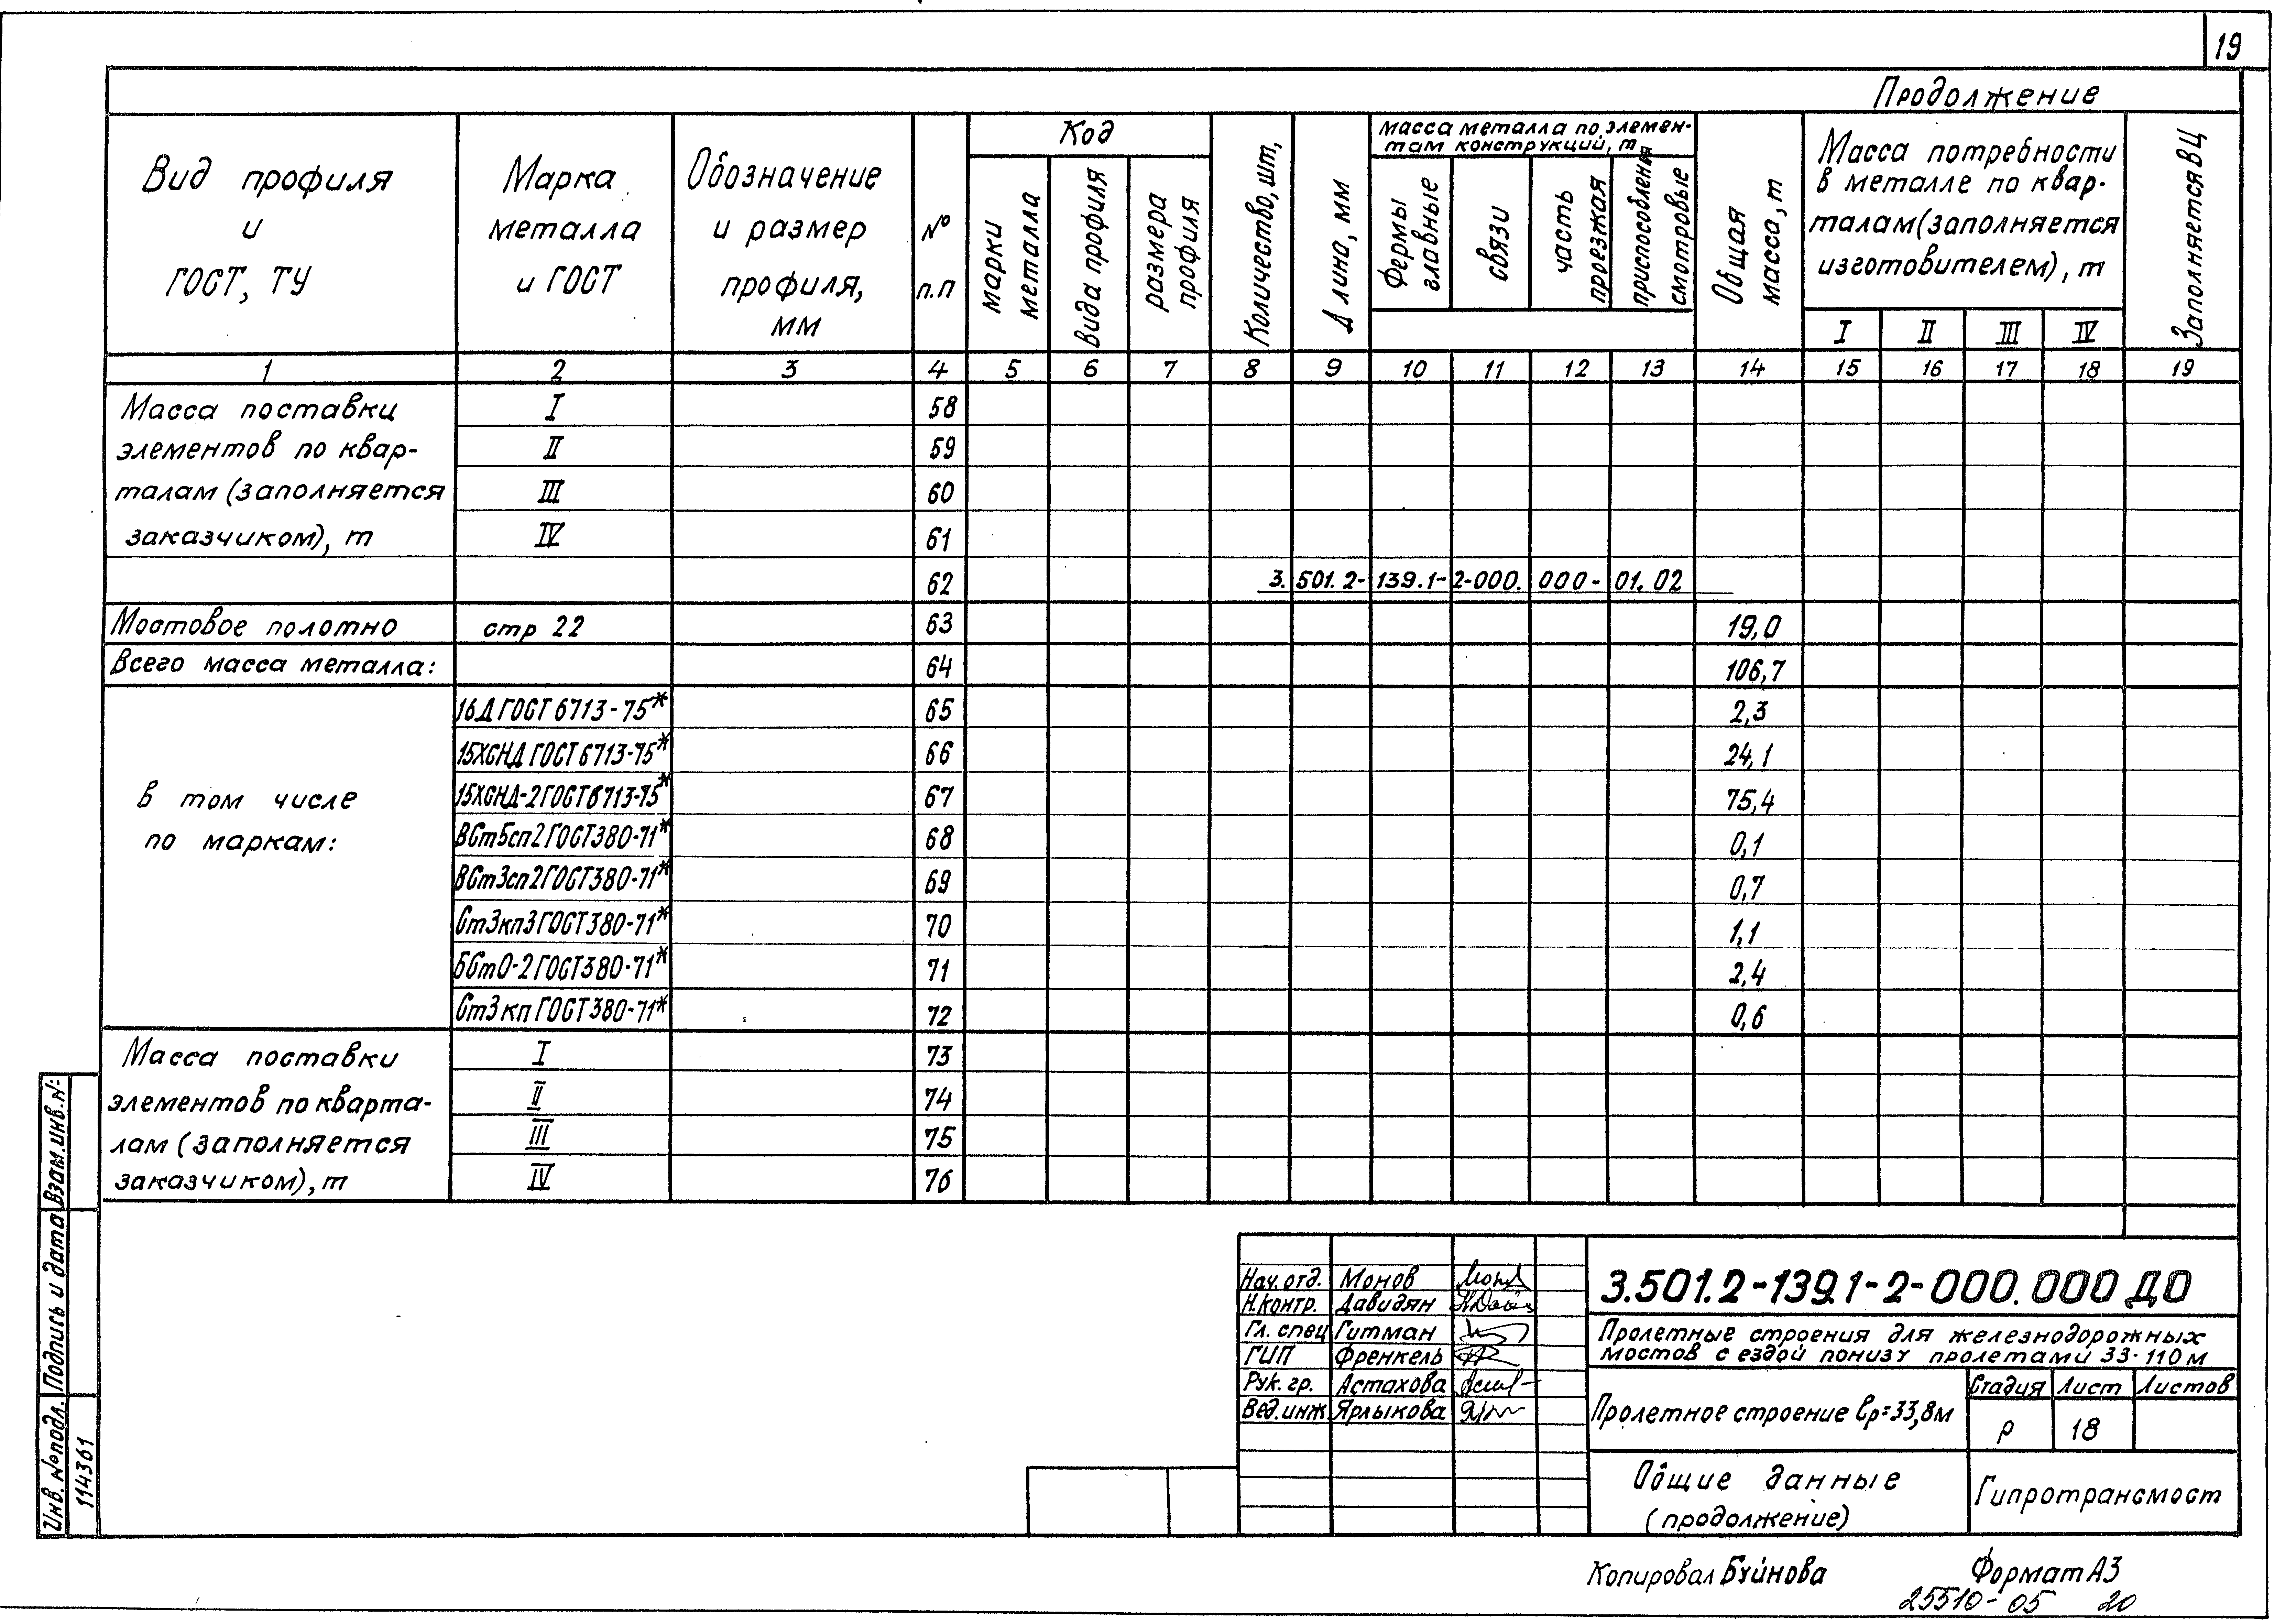 19
Продолжение
Вид профиля и ГОСТ, ТУ
Марка металла и ГОСТ
Обозначение и размер профиля, мм
№ п.п
Код
марки металла
вида профиля
размера профиля
Количество, шт,
Длина, мм
масса металла по элемен-
там конструкций, т
Фермы главные
связи
часть проезжая
приспособления смотровые
Общая масса, т
Масса потребности
в металле по квар-
талам (заполняется
изготовителем), т
I II III IV
Заполняется ВЦ
1 2 3 4 5 6 7 8 9 10 11 12 13 14 15 16 17 18 19
Масса поставки I 58
элементов по квар- II 59
талам (заполняется III 60
заказчиком), т IV 61
62 3.501.2-139.1-2-000.000-01,02
Мостовое полотно стр 22 63 19,0
Всего масса металла: 64 106,7
16Д ГОСТ 6713-75* 65 2,3
15ХСНД ГОСТ 6713-75* 66 24,1
в том числе 15ХСНД-2 ГОСТ 6713-75* 67 75,4
по маркам: ВСт5сп2 ГОСТ 380-71* 68 0,1
ВСт3сп2 ГОСТ 380-71* 69 0,7
Ст3кп3 ГОСТ 380-71* 70 1,1
БСт0-2 ГОСТ 380-71* 71 2,4
Ст3кп ГОСТ 380-71* 72 0,6
Масса поставки I 73
элементов по кварта- II 74
лам (заполняется III 75
заказчиком), т IV 76
Взам.инв.№
Подпись и дата
Инв.№подл.
114361
Нач.отд. Монов
Н.контр. Давидян
Гл. спец Гитман
ГИП Френкель
Рук. гр. Астахова
Вед.инж Ярлыкова
3.501.2-139.1-2-000.000 ДО
Пролетные строения для железнодорожных
мостов с ездой понизу пролетами 33-110 м
Пролетное строение lр=33,8м
Стадия Лист Листов
Р 18
Общие данные
(продолжение)
Гипротрансмост
Копировал Буйнова Формат А3
25510-05 20